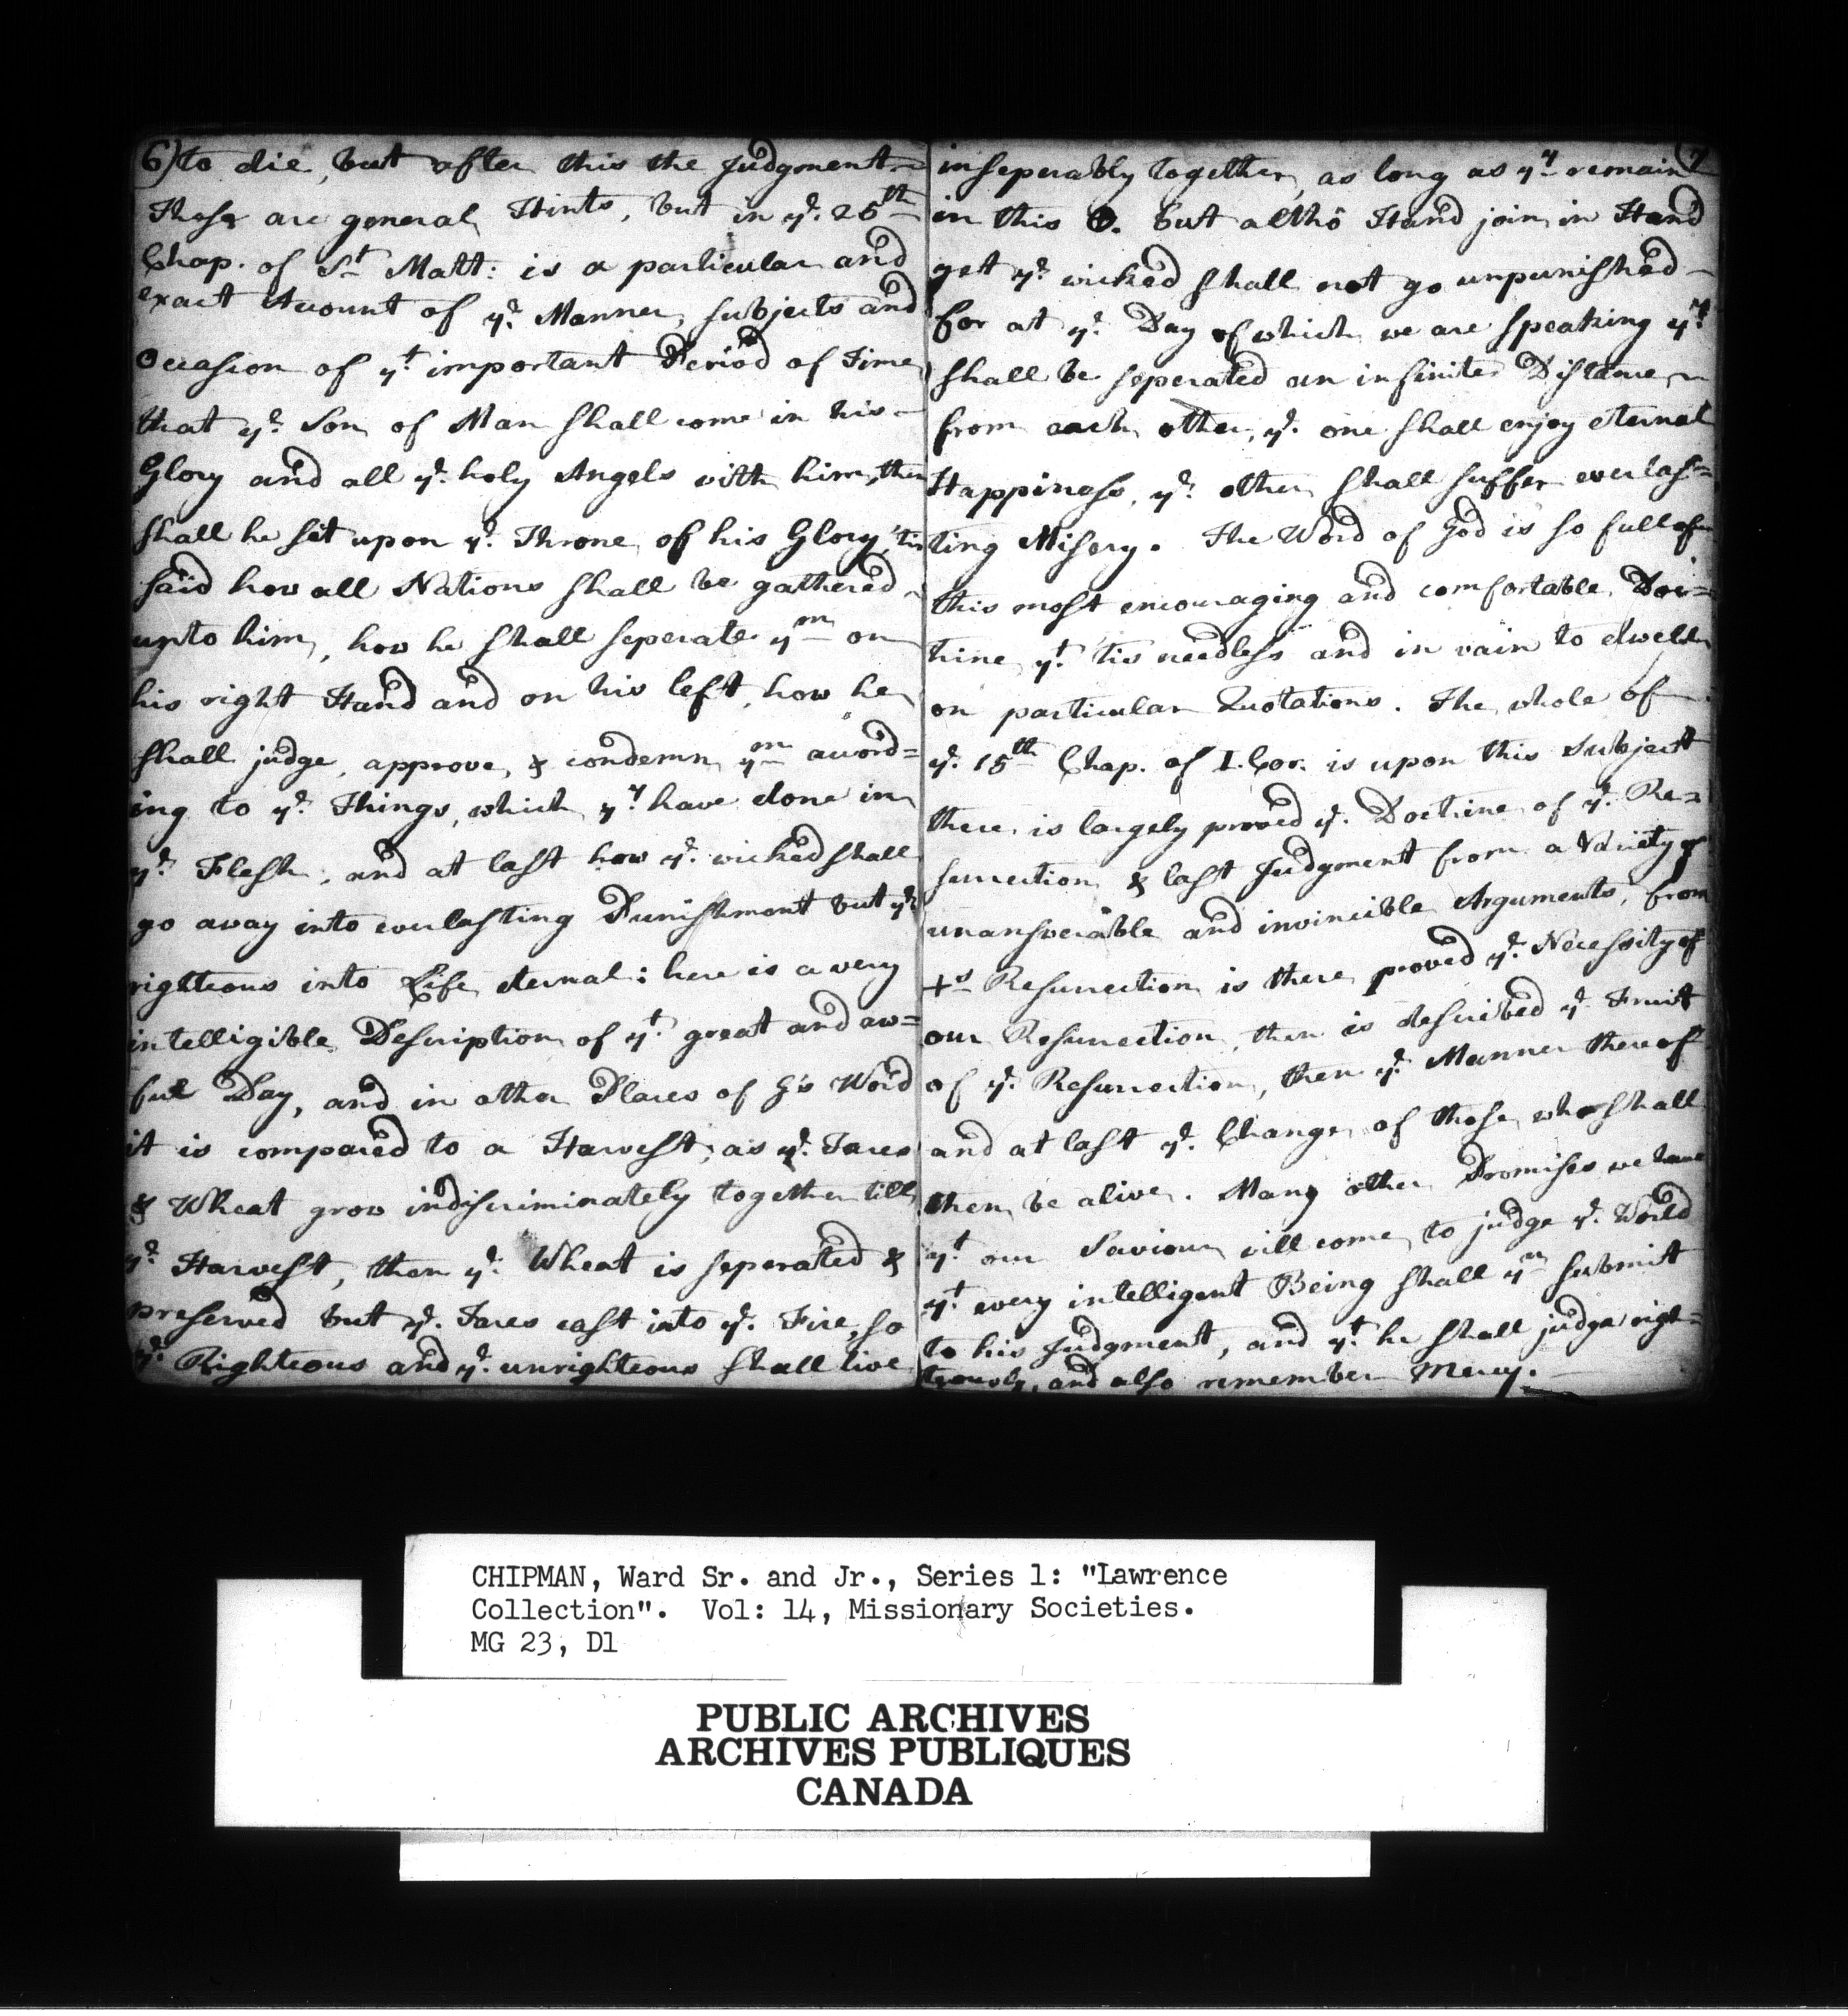 6) to die, but after this the Judgment.=
These are general Hints, but in yᵉ. 25th
Chap. of St Matt: is a particular and
exact Account of yᵉ. Manner, subjects and
Occasion of yᵗ important Period of Time
that yᵉ. Son of Man shall come in his
Glory and all yᵉ. holy Angels with him, then
shall he sit upon yᵉ. Throne of his Glory, 'tis
said how all Nations shall be gathered
unto him, how he shall seperate yᵐ on
his right Hand and on his left, how he
shall judge, approve, & condemn yᵐ accord=
ing to yᵉ. Things, which yʸ have done in
yᵉ. Flesh, and at last how yᵉ. wicked shall
go away into everlasting Punishment but yᵉ
righteous into Life eternal: here is a very
intelligible Description of yᵗ. great and aw=
ful Day, and in other Places of G's Word
it is compared to a Harvest; as yᵉ. Tares
& Wheat grow indiscriminately together till
yᵉ. Harvest, then yᵉ. Wheat is seperated &
preserved but yᵉ. Tares cast into yᵉ. Fire, so
yᵉ. Righteous and yᵉ. unrighteous shall live
(7
inseperably together, as long as yʸ remain
in this . but altho Hand join in Hand
yet yᵉ. wicked shall not go unpunished
for at yᵉ. Day of which we are speaking yʸ.
shall be seperated an infinite Distance
from each other, yᵉ. one shall enjoy eternal
Happiness, yᵉ. other shall suffer everlas=
ting Misery. The Word of God is so full of
this most encouraging and comfortable Doc=
trine yᵗ. 'tis needless and in vain to dwell
on particular Quotations. The whole of
yᵉ. 15th Chap. of I. Cor. is upon this Subject
there is largely proved yᵉ. Doctrine of yᵉ. Re=
surrection & last Judgment from a Variety of
unanswerable and invincible Arguments, from
+s Resurrection is there proved yᵉ. Necessity of
our Resurrection, then is described yᵉ. Fruit
of yᵉ. Resurrection, then yᵉ. Manner thereof
and at last yᵉ. Change of those who shall
then be alive. Many other Promises we have
yᵗ our Saviour will come to judge yᵉ. World
yᵗ. every intelligent Being shall yⁿ submit
to his Judgment, and yᵗ. he shall judge righ=
teously, and also remember Mercy.
CHIPMAN, Ward Sr. and Jr., Series 1: "Lawrence
Collection". Vol: 14, Missionary Societies.
MG 23, D1
PUBLIC ARCHIVES
ARCHIVES PUBLIQUES
CANADA